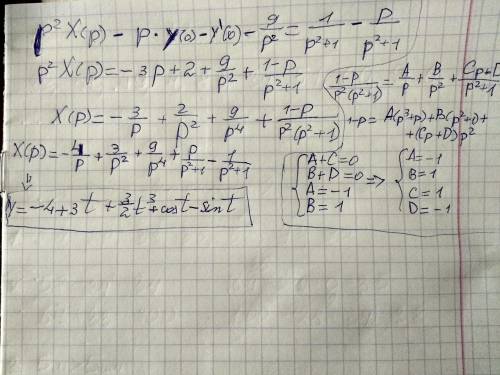 p² X(p) - p · y(0) - y'(0) - 9/p² = 1/(p²+1) - p/(p²+1)
p² X(p) = -3p + 2 + 9/p² + (1-p)/(p²+1)
(1-p)/(p²(p²+1)) = A/p + B/p² + (Cp+D
X(p) = -3/p + 2/p² + 9/p⁴ + (1-p)/(p²(p²+1))
1-p = A(p³+p) + B(p²+1) +
+(Cp+D)p²
X(p) = -4/p + 3/p² + 9/p⁴ + p/(p²+1) - 1/(p²+1)
{ A+C=0
B+D=0
A=-1
B=1
=>
{ A=-1
B=1
C=1
D=-1
y = -4+3t + 3/2 t³ + cost - sint